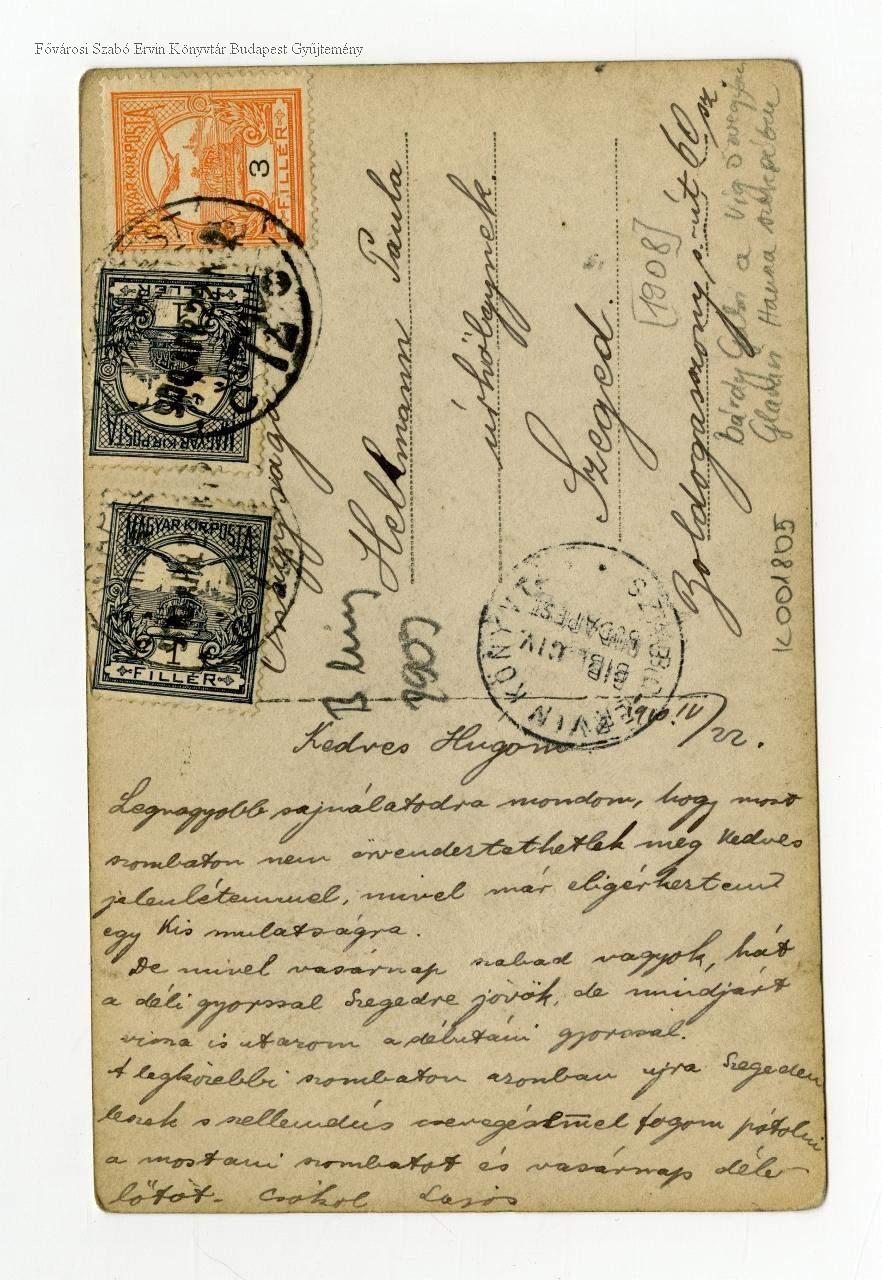 Fővárosi Szabó Ervin Könyvtár Budapest Gyűjtemény
MAGYAR KIR. POSTA
3
FILLÉR
MAGYAR KIR. POSTA
1
FILLÉR
MAGYAR KIR. POSTA
1
FILLÉR
Őnagysága
Hellmann Paula
úrhölgynek.
Szeged.
Boldogasszony s.-út 60 sz.
[1908]
Bárdy a Víg özvegy
Glavári Hanna szerepében
K001805
SZABÓ ERVIN KÖNYVTÁR
BIBL. CIV.
BUDAPEST
1910 IV/22.
Kedves Hugom
Legnagyobb sajnálatodra mondom, hogy most
szombaton nem örvendeztethetlek meg kedves
jelenlétemmel, mivel már eligérkeztem
egy kis mulatságra.
De mivel vasárnap szabad vagyok, hát
a déli gyorssal Szegedre jövök, de mindjárt
vissza is utazom a délutáni gyorssal.
A legközebbi szombaton azonban ujra Szegeden
leszek s szellemdús csevegésemmel fogom pótolni
a mostani szombatot és vasárnap déle-
lőtöt. Csókol Lajos